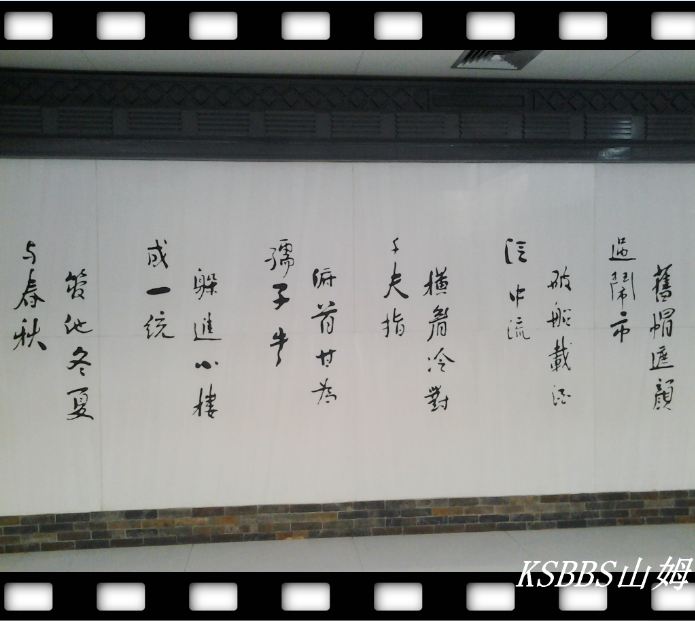 舊帽遮顏
過鬧市
破船載酒
泛中流
橫眉冷對
千夫指
俯首甘為
孺子牛
躲進小樓
成一统
管他冬夏
与春秋
KSBBS山姆